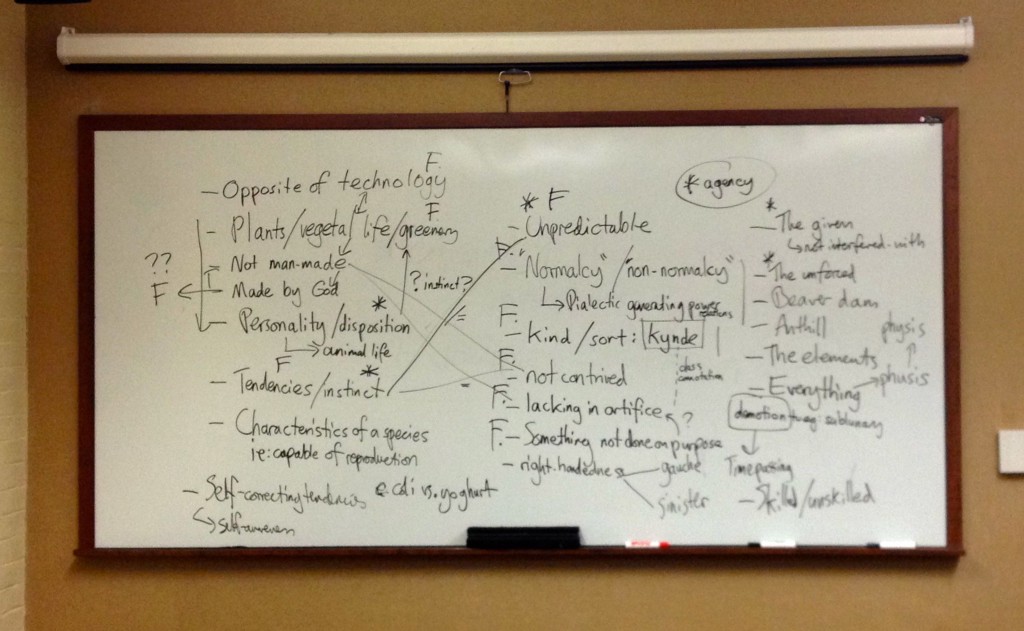 F.
- Opposite of technology
F
- Plants/vegetal life/greenery
??
F
- Not man-made
- Made by God
*
- Personality/disposition
→ animal life
? instinct?
F
*
- Tendencies/instinct
- Characteristics of a species
ie: capable of reproduction
- Self-correcting tendencies
e.coli vs. yoghurt
* F
- Unpredictable
F
- "Normalcy"/"non-normalcy"
→ Dialectic generating power
F.
- kind/sort: Kynde
class
connotation
F.
- not contrived
F.
- lacking in artifice
?
F.- Something not done on purpose
- right-handedness
gauche
sinister
* agency
*
- The given
→ not interfered-with
*
- The unforced
- Beaver dam
- Anthill
- The elements
- Everything → phusis
physis
sublunary
Time passing
- Skilled/unskilled